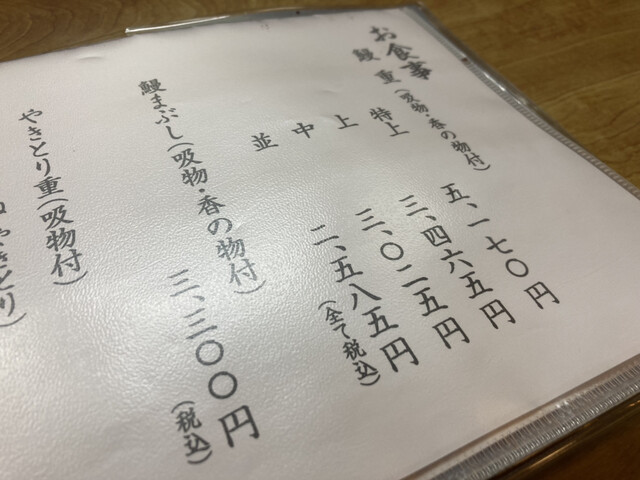 お食事
鰻重(吸物・香の物付)
特上 五、一七〇円
上 三、四六五円
中 三、〇二五円
並 二、五八五円
(全て税込)
鰻まぶし(吸物・香の物付)
三、三〇〇円
(税込)
やきとり重(吸物付)
やきとり)